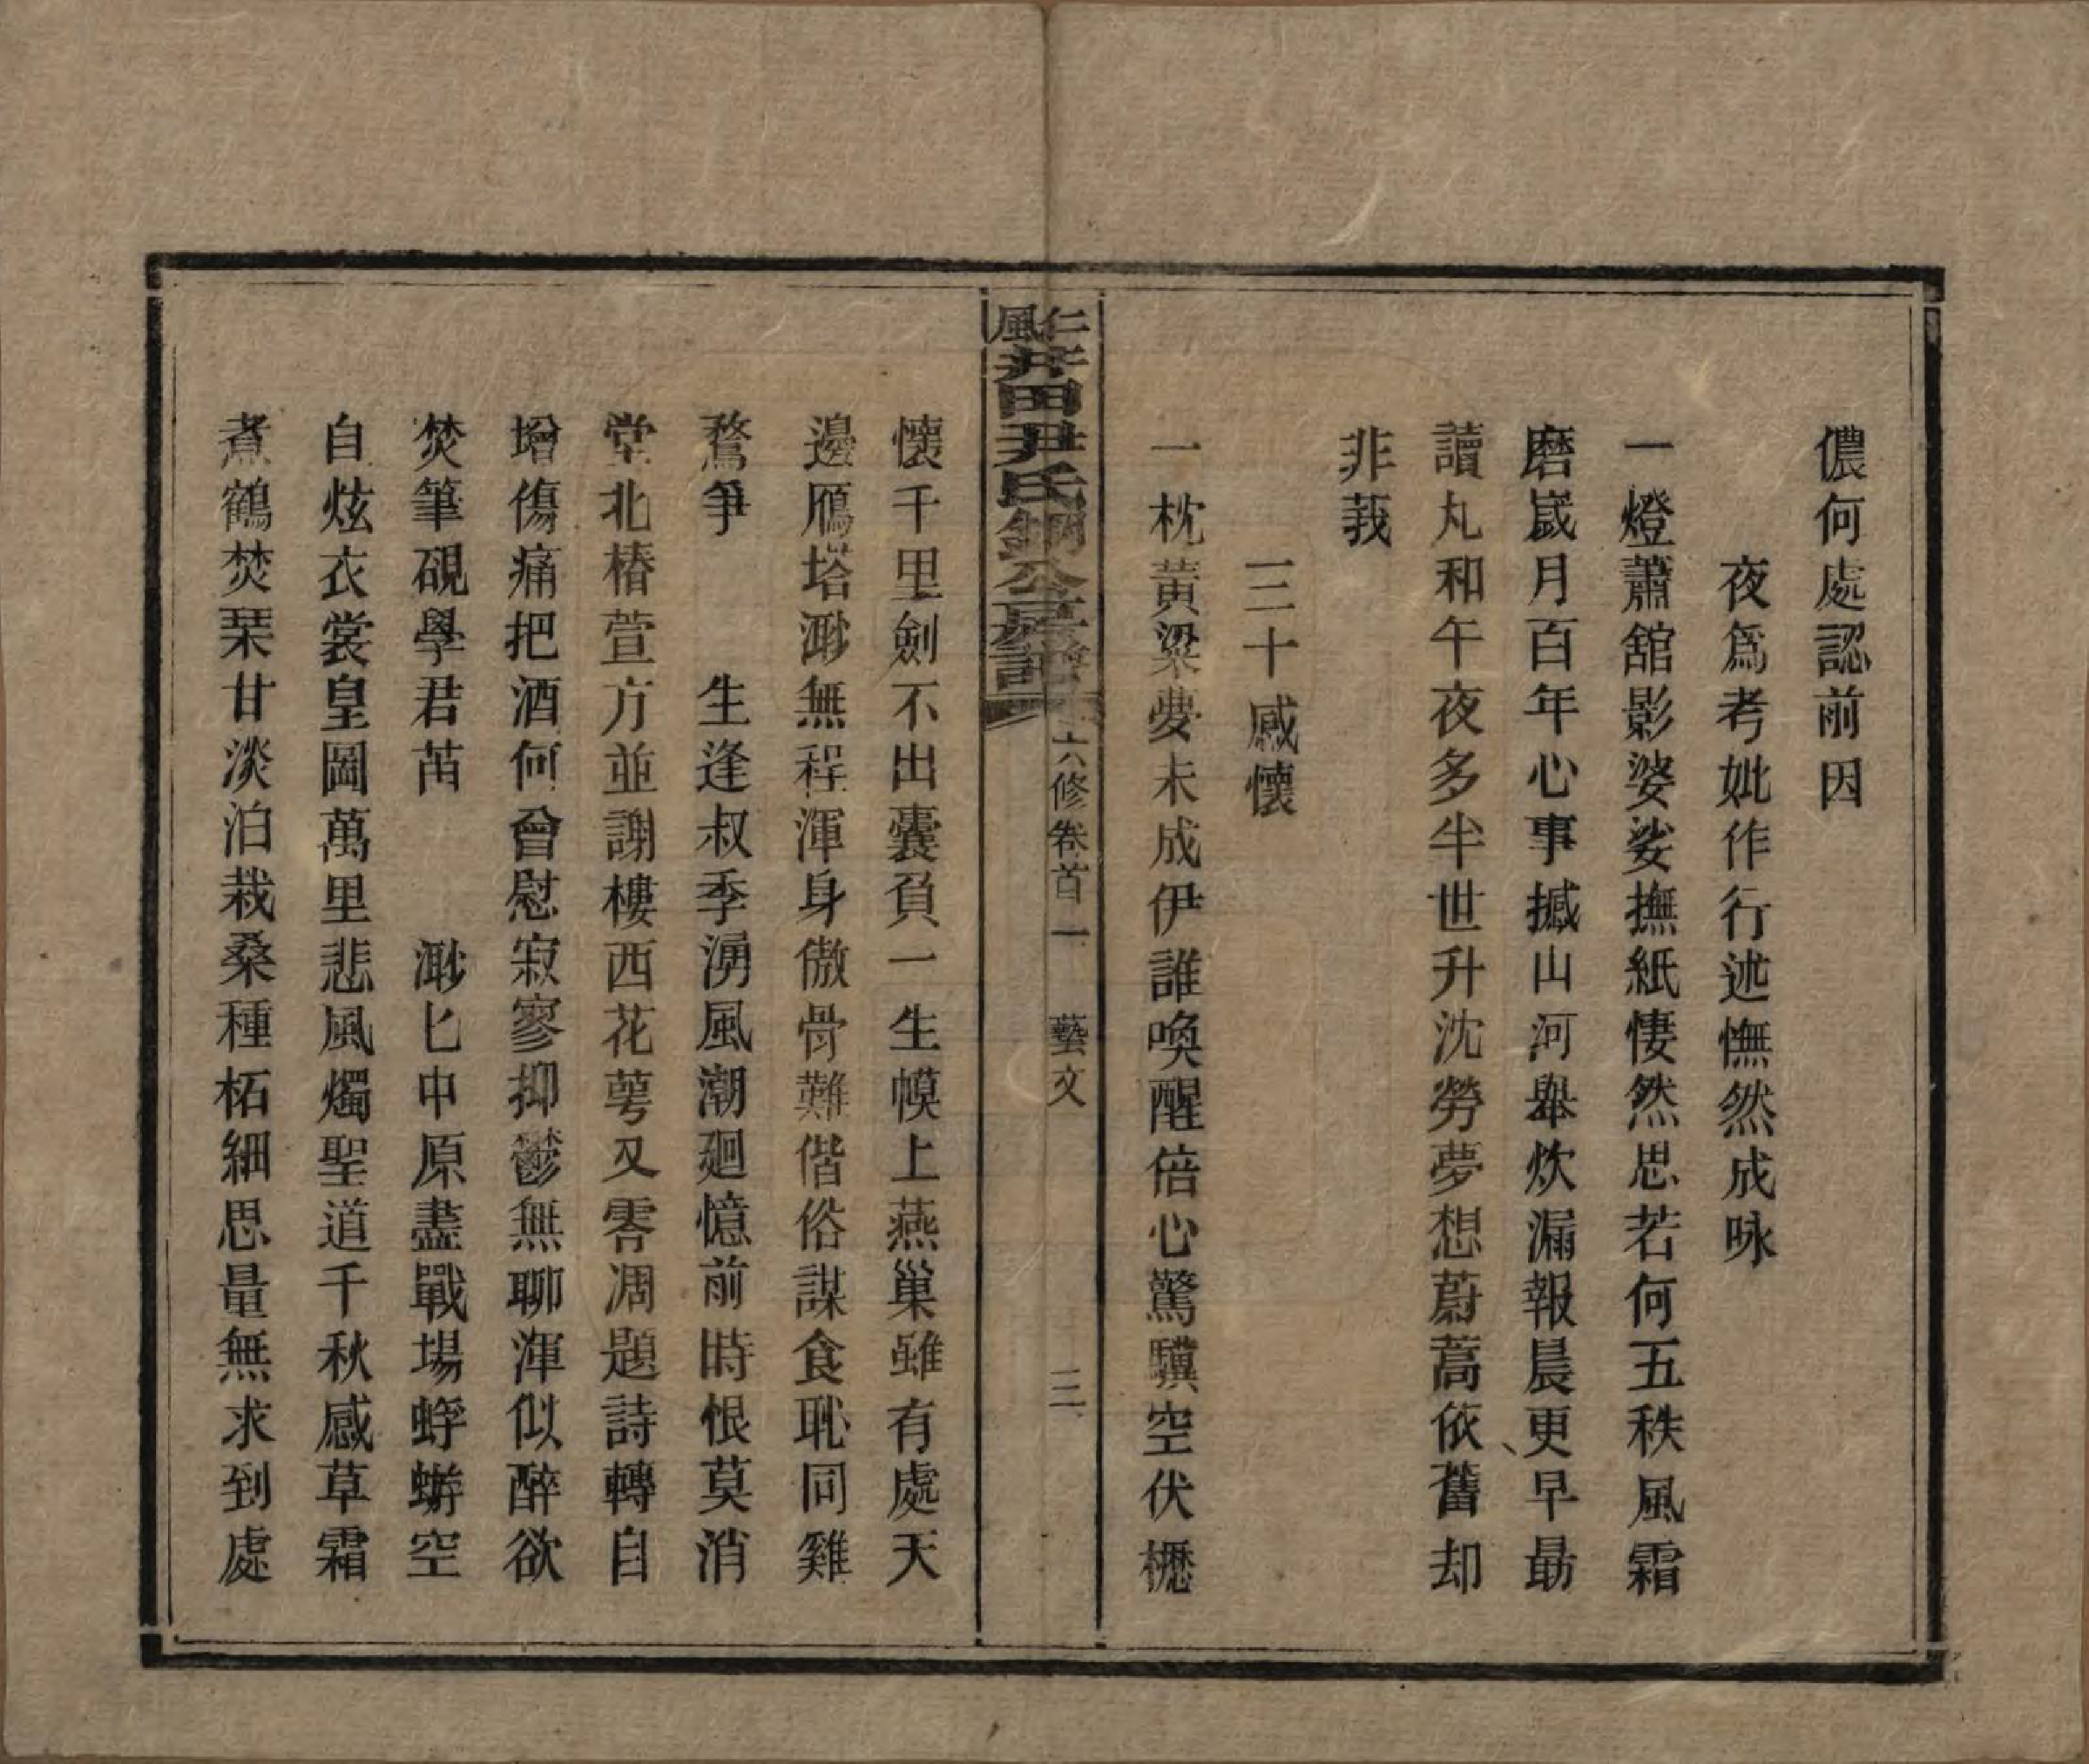 儂何處認前因
夜爲考妣作行述憮然成咏
一燈蕭舘影婆娑撫紙悽然思若何五秩風霜
磨歲月百年心事撼山河舉炊漏報晨更早勗
讀丸和午夜多半世升沈勞夢想蔚蒿依舊却
非莪
三十感懷
一枕黃粱夢未成伊誰喚醒倍心驚驥空伏櫪
仁風井田尹氏錦公房譜
六修卷首一
藝文
三
懷千里劍不出囊負一生幙上燕巢雖有處天
邊雁塔渺無程渾身傲骨難偕俗謀食恥同雞
鶩爭　生逢叔季湧風潮廻憶前時恨莫消
堂北椿萱方並謝樓西花萼又零凋題詩轉自
增傷痛把酒何曾慰寂寥抑鬱無聊渾似醉欲
焚筆硯學君苗　渺匕中原盡戰場蜉蝣空
自炫衣裳皇圖萬里悲風燭聖道千秋感草霜
煮鶴焚琹甘淡泊栽桑種柘細思量無求到處